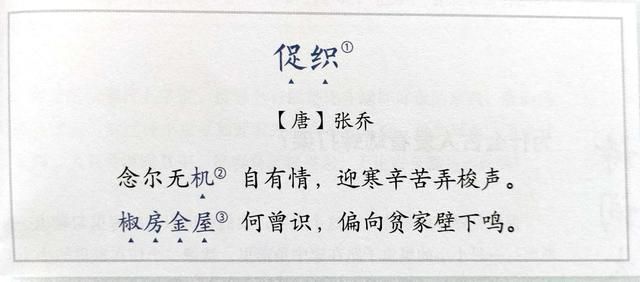 促织①
【唐】张乔
念尔无机② 自有情，迎寒辛苦弄梭声。
椒房金屋③ 何曾识，偏向贫家壁下鸣。